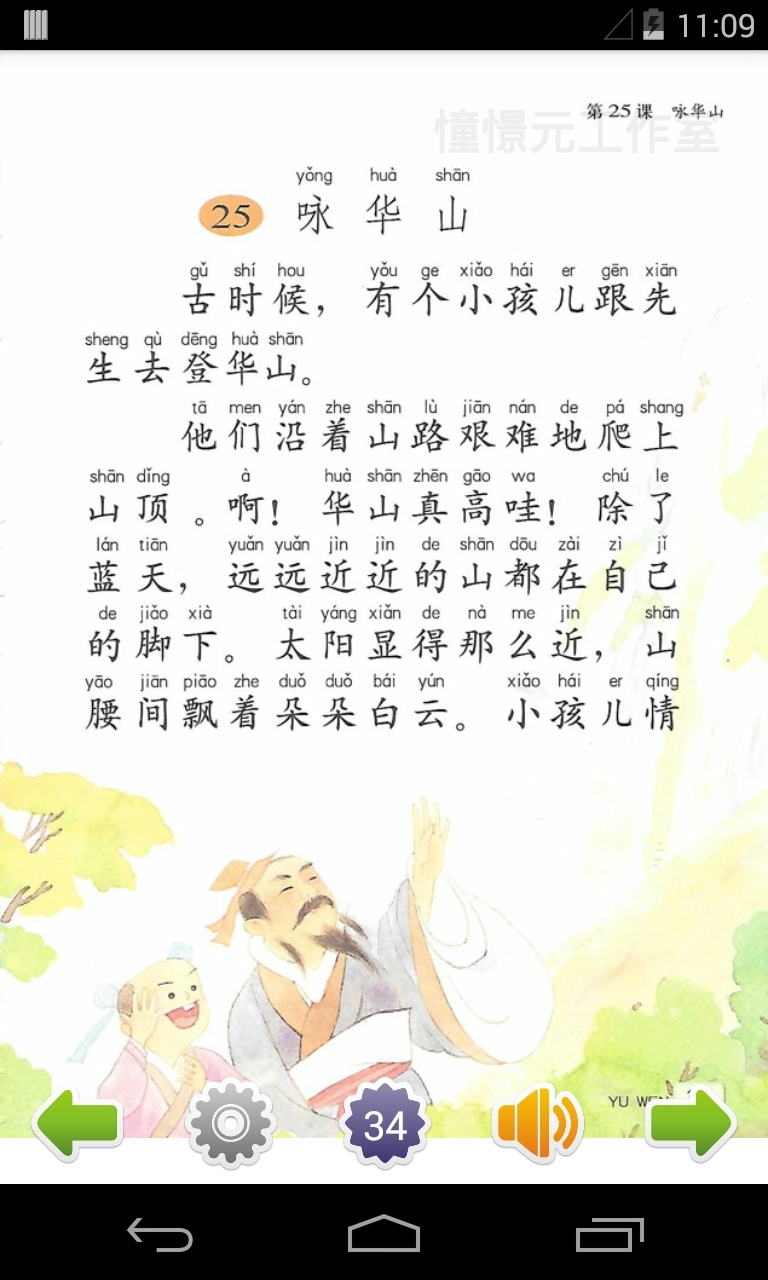 11:09
第25课 咏华山
憧憬元工作室
yǒng huà shān
25 咏华山
gǔ shí hou yǒu ge xiǎo hái er gēn xiān
古时候，有个小孩儿跟先
sheng qù dēng huà shān
生去登华山。
tā men yán zhe shān lù jiān nán de pá shang
他们沿着山路艰难地爬上
shān dǐng à huà shān zhēn gāo wa chú le
山顶。啊！华山真高哇！除了
lán tiān yuǎn yuǎn jìn jìn de shān dōu zài zì jǐ
蓝天，远远近近的山都在自己
de jiǎo xià tài yáng xiǎn de nà me jìn shān
的脚下。太阳显得那么近，山
yāo jiān piāo zhe duǒ duǒ bái yún xiǎo hái er qíng
腰间飘着朵朵白云。小孩儿情
YU WEN
34